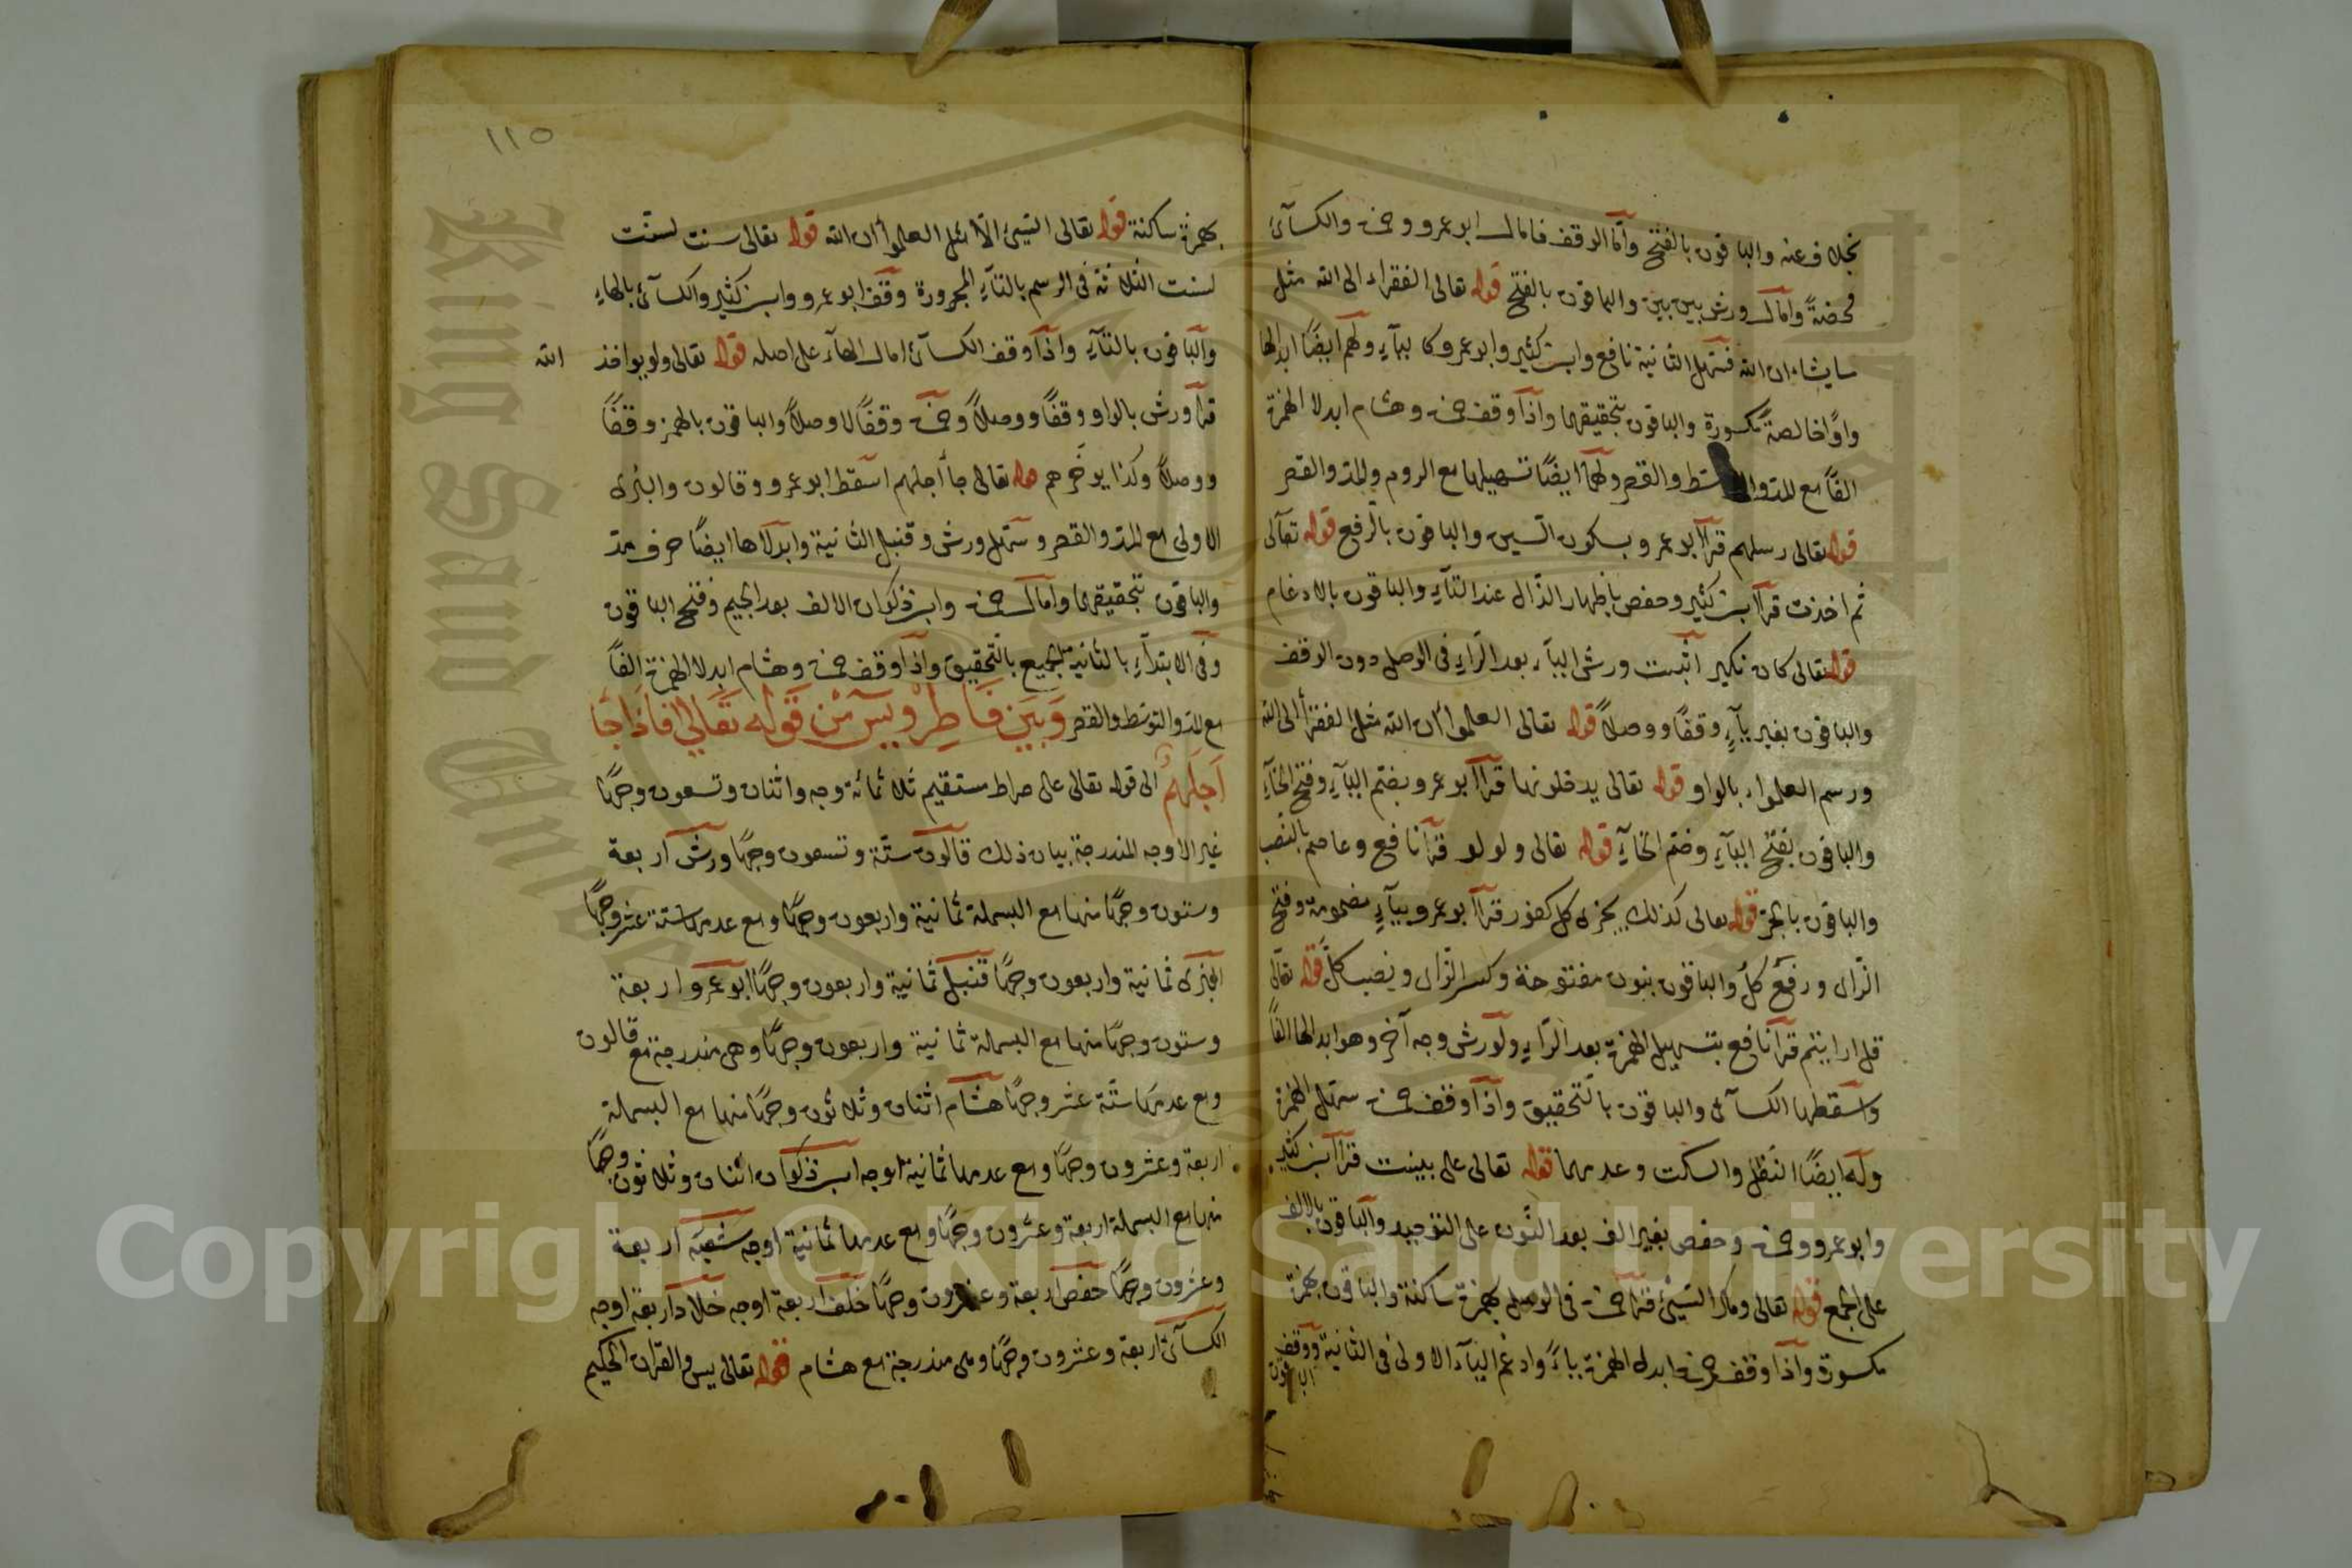 بخلاف عنه والباقون بالفتح وأما الوقف فامال ابو عمرو وحمزة والكسائى
محضةً وأمال ورش بين بين والباقون بالفتح قوله تعالى الفقراء الى الله مثل
ما يشاء ان الله فسهل الثانية نافع وابن كثير وابو عمرو كا لياء ولهم أيضًا ابدالها
واوًا خالصةً مكسورة والباقون بتحقيقهما واذا وقف حمزة وهشام ابدلا الهمزة
الفًا مع المد والتوسط والقصر ولهما ايضًا تسهيلها مع الروم والمد والقصر
قوله تعالى رسلهم قرأ ابو عمرو بسكون السين والباقون بالرفع قوله تعالى
ثم اخذت قرأ ابن كثير وحفص باظهار الذال عند التاء والباقون بالادغام
قوله تعالى كان نكير اثبت ورش الياء بعد الراء فى الوصل دون الوقف
والباقون بغير ياء وقفًا ووصلًا قوله تعالى العلموا ان الله مثل الفقرأ الى الله
ورسم العلموا بالواو قوله تعالى يدخلونها قرأ ابو عمرو بضم الياء وفتح الخاء
والباقون بفتح الياء وضم الخاء قوله تعالى ولولو قرأ نافع وعاصم بالنصب
والباقون بالجر قوله تعالى كذلك يجزى كل كفور قرأ ابو عمرو بياء مضمومة وفتح
الزاى ورفع كل والباقون بنون مفتوحة وكسر الزاى ونصب كل قوله تعالى
قل ارايتم قرأ نافع بتسهيل الهمزة بعد الراء ولورش وجه آخر وهو ابدالها الفًا
واسقطها الكسائى والباقون بالتحقيق واذا وقف حمزة سهل الهمزة
وله ايضًا النقل والسكت وعدمهما قوله تعالى على بينت قرأ ابن كثير
وابو عمرو وحمزة وحفص بغير الف بعد النون على التوحيد والباقون بالالف
على الجمع قوله تعالى ومكر السيئ قرأ حمزة فى الوصل بهمزة ساكنة والباقون بهمزة
مكسورة واذا وقف حمزة ابدل الهمزة ياءً وادغم الياء الاولى فى الثانية ووقف الباقون
١١٥
بهمزة ساكنة قوله تعالى السيئ الا مثل العلموا ان الله قوله تعالى سنت لسنت
لسنت الثلاثة فى الرسم بالتاء المجرورة وقف ابو عمرو وابن كثير والكسائى بالهاء
والباقون بالتاء واذا وقف الكسائى امال الهاء على اصله قوله تعالى ولو يواخذ الله
قرأ ورش بالواو وقفًا ووصلًا وحمزة وقفًا لا وصلًا والباقون بالهمز وقفًا
ووصلًا وكذا يوخرهم قوله تعالى جا أجلهم اسقط ابو عمرو وقالون والبزى
الاولى مع المد والقصر وسهل ورش وقنبل الثانية وابدلاها ايضًا حرف مد
والباقون بتحقيقهما وأمال حمزة وابن ذكوان الالف بعد الجيم وفتح الباقون
وفى الابتداء بالثانية للجميع بالتحقيق واذا وقف حمزة وهشام ابدلا الهمزة الفًا
مع المد والتوسط والقصر وبين فاطر ويس من قوله تعالى فاذا جا
اجلهم الى قوله تعالى على صراط مستقيم ثلاثمائة وجه واثنان وتسعون وجهًا
غير الاوجه المندرجة بيان ذلك قالون ستة وتسعون وجهًا ورش اربعة
وستون وجهًا منها مع البسملة ثمانية واربعون وجهًا ومع عدمها ستة عشر وجهًا
البزى ثمانية واربعون وجهًا قنبل ثمانية واربعون وجهًا ابو عمرو اربعة
وستون وجهًا منها مع البسملة ثمانية واربعون وجهًا وهى مندرجة مع قالون
ومع عدمها ستة عشر وجهًا هشام اثنان وثلاثون وجهًا منها مع البسملة
اربعة وعشرون وجهًا ومع عدمها ثمانية اوجه ابن ذكوان اثنان وثلاثون وجهًا
منها مع البسملة اربعة وعشرون وجهًا ومع عدمها ثمانية اوجه شعبة اربعة
وعشرون وجهًا حفص اربعة وعشرون وجهًا خلف اربعة اوجه خلاد اربعة اوجه
الكسائى اربعة وعشرون وجهًا وهى مندرجة مع هشام قوله تعالى يس والقران الحكيم
King Saud University
Copyright © King Saud University